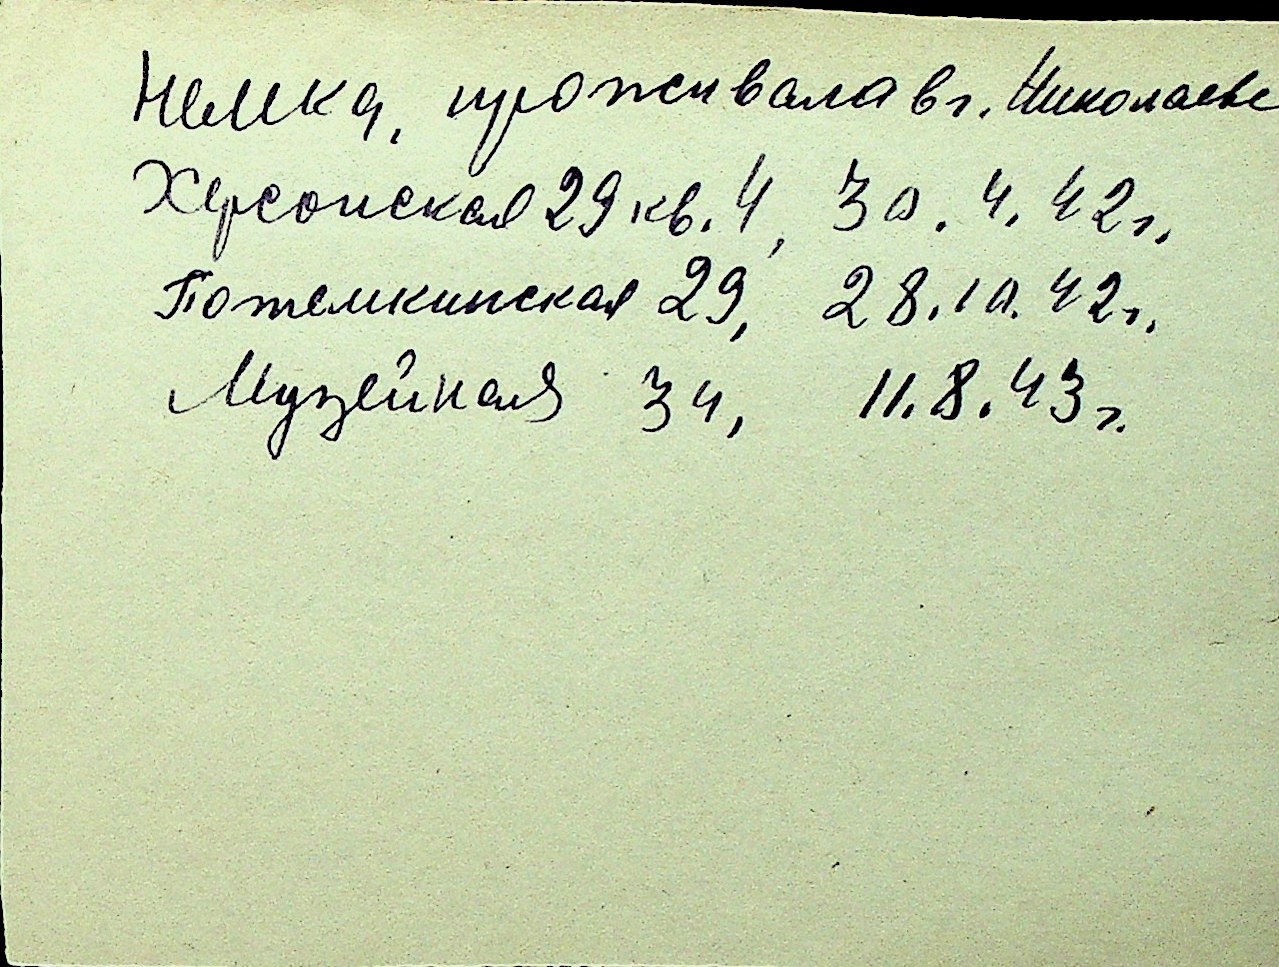 Немка, проживала в г. Николаеве
Херсонская 29 кв. 4, 30.4.42г.
Потемкинская 29, 28.10.42г.
Музейная 34, 11.8.43г.